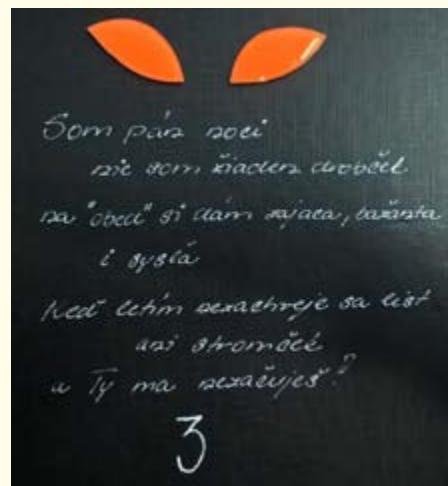 Som pán noci
nie som žiaden drobček
na "obed" si dám zajaca, bažanta
i sysľa
Keď letím nezachveje sa list
ani stromček
a Ty ma nezačuješ!
3